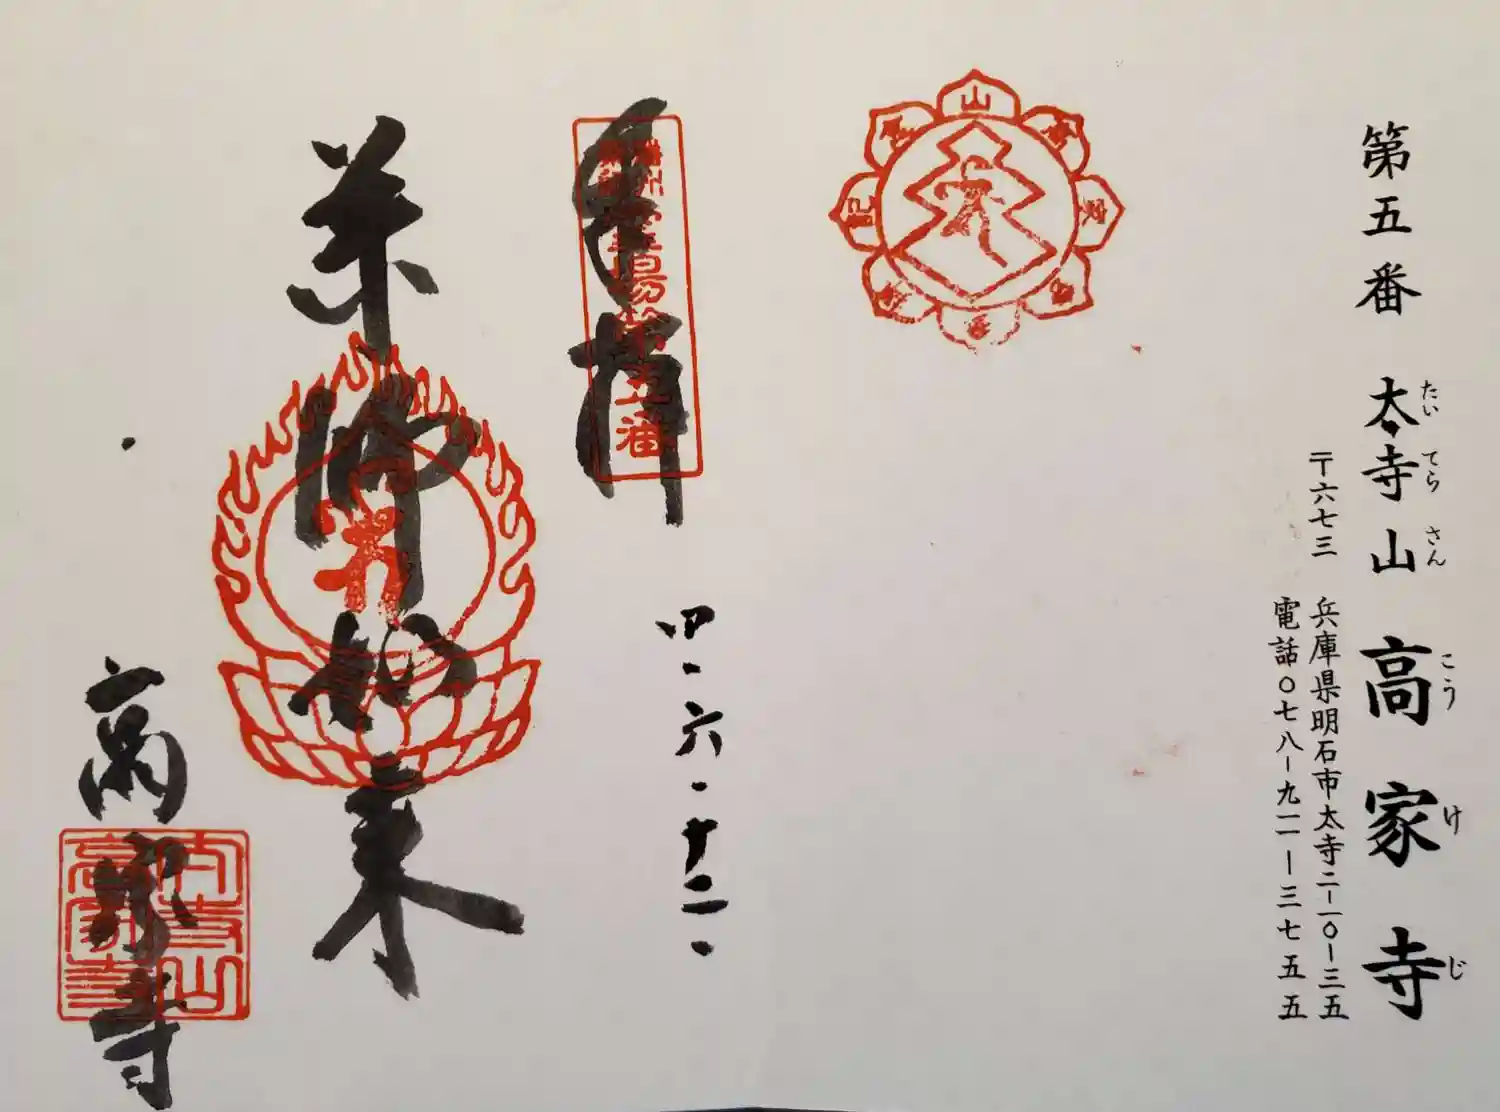 第五番 太寺山 高家寺
たい てら さん こう け じ
〒六七三 兵庫県明石市太寺二-一〇-三五
電話〇七八-九一一-三七五五
山
奉拝
霊場第五番
四・六・十二・
薬師如来
高家寺
太寺山
高家寺